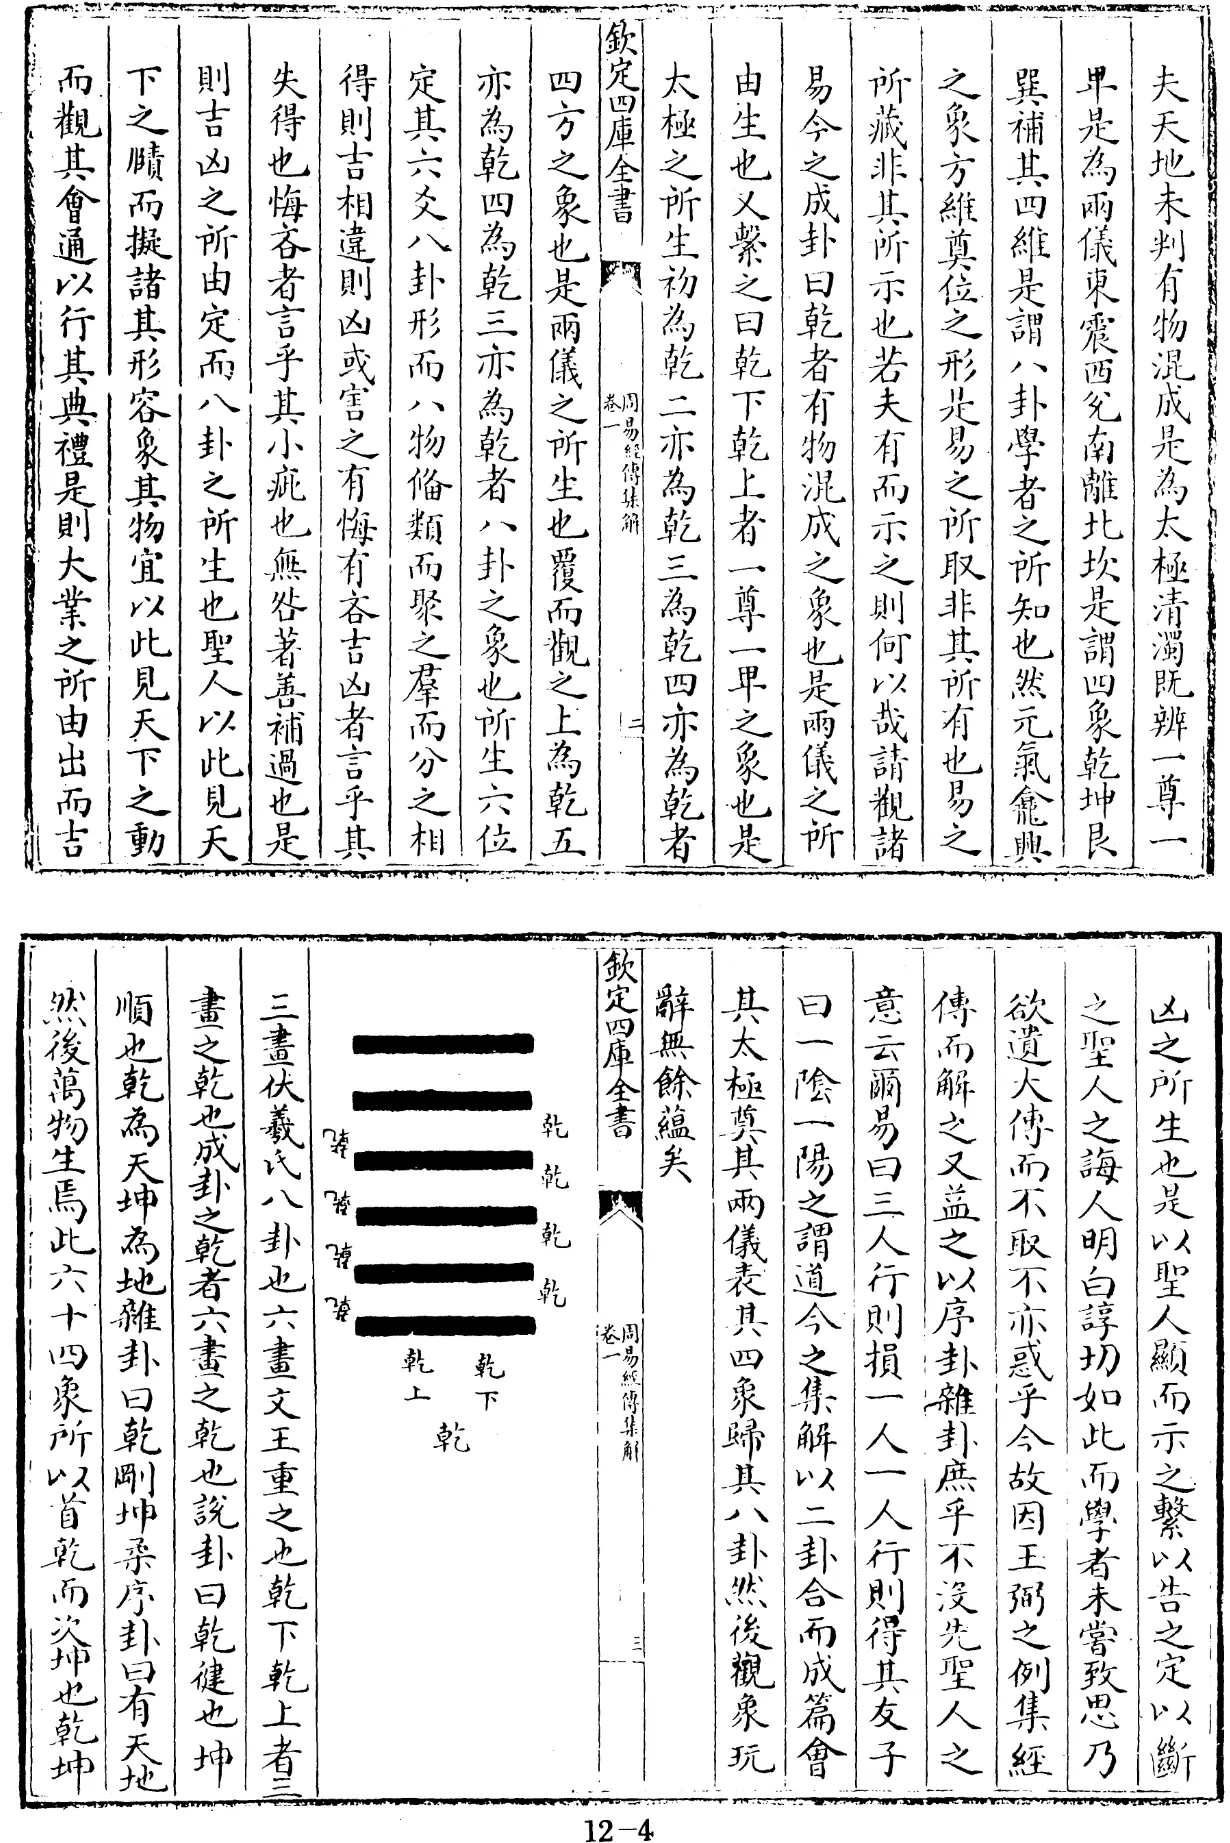 夫天地未判有物混成是為太極清濁既辨一尊一
卑是為兩儀東震西兌南離北坎是謂四象乾坤艮
巽補其四維是謂八卦學者之所知也然元氣龕興
之象方維奠位之形是易之所取非其所有也易之
所藏非其所示也若夫有而示之則何以哉請觀諸
易今之成卦曰乾者有物混成之象也是兩儀之所
由生也又繫之曰乾下乾上者一尊一卑之象也是
太極之所生初為乾二亦為乾三為乾四亦為乾者
欽定四庫全書
周易經傳集解
卷一
二
四方之象也是兩儀之所生也覆而觀之上為乾五
亦為乾四為乾三亦為乾者八卦之象也所生六位
定其六爻八卦形而八物備類而聚之羣而分之相
得則吉相違則凶或害之有悔有吝吉凶者言乎其
失得也悔吝者言乎其小疵也無咎著善補過也是
則吉凶之所由定而八卦之所生也聖人以此見天
下之賾而擬諸其形容象其物宜以此見天下之動
而觀其會通以行其典禮是則大業之所由出而吉
凶之所生也是以聖人顯而示之繫以告之定以斷
之聖人之誨人明白諄切如此而學者未嘗致思乃
欲遺大傳而不取不亦惑乎今故因王弼之例集經
傳而解之又益之以序卦雜卦庶乎不沒先聖人之
意云爾易曰三人行則損一人一人行則得其友子
曰一陰一陽之謂道今之集解以二卦合而成篇會
其太極奠其兩儀表其四象歸其八卦然後觀象玩
辭無餘蘊矣
欽定四庫全書
周易經傳集解
卷一
三
乾
乾
乾
乾
乾
乾
乾
乾
乾下
乾上
乾
三畫伏羲氏八卦也六畫文王重之也乾下乾上者三
畫之乾也成卦之乾者六畫之乾也說卦曰乾健也坤
順也乾為天坤為地雜卦曰乾剛坤柔序卦曰有天地
然後萬物生焉此六十四象所以首乾而次坤也乾坤
12-4